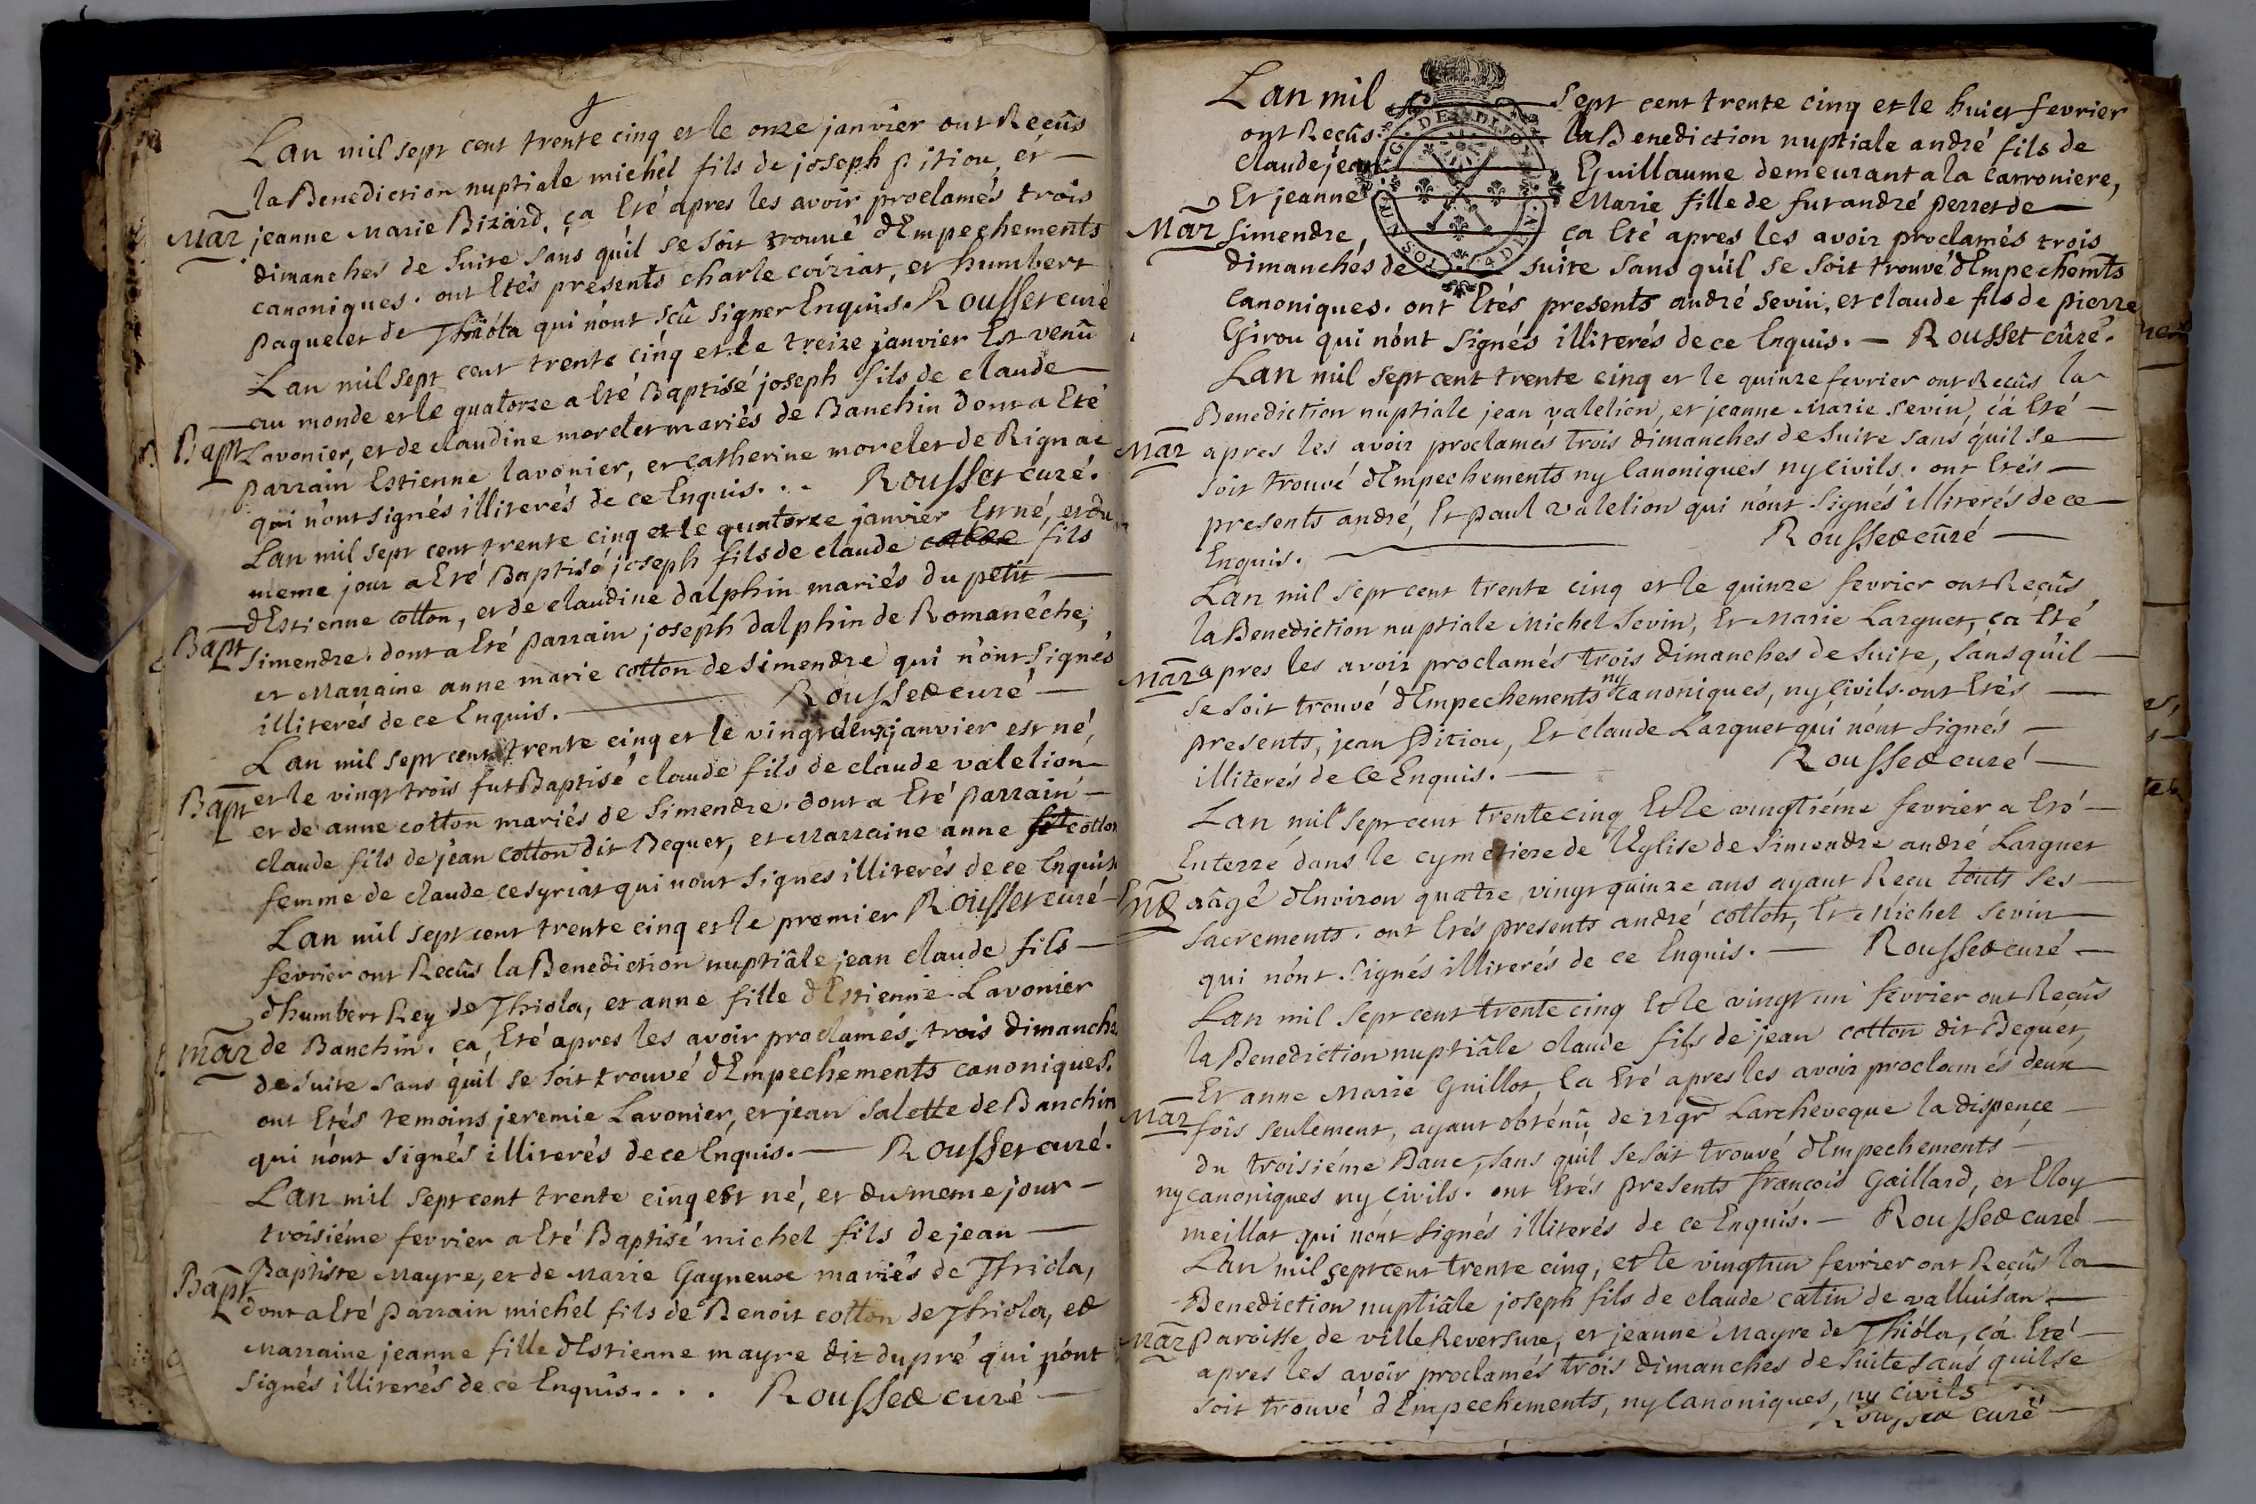 Lan mil sept cent trente cinq et le onze janvier ont Reçûs
la Benediction nuptiale michel fils de joseph pitiou, et
Mar jeanne Marie Bizard, ça Eté apres les avoir proclamés trois
dimanches de suite sans quil se soit trouvé dEmpechements
canoniques. ont Etés presents charle coiziat, et humbert
paquelet de Thiola qui nónt sçû signer Enquis. Rousset curé
Lan mil sept cent trente cinq et le treize janvier Est venû
au monde et le quatorze a Eté Baptisé joseph fils de claude
Bapt Lavonier, et de claudine morelet mariés de Banchin dont a Eté
parrain Estienne lavonier, et catherine morelet de Rignac
qui nónt signés illiterés de ce Enquis. . . Rousset curé.
Lan mil sept cent trente cinq et le quatorze janvier Est né, et du
meme jour a Eté Baptisé joseph fils de claude fils
dEstienne cotton, et de claudine dalphin mariés du petit
Bapt Simendre. dont a Eté parrain joseph dalphin de Romanêche,
et Marraine anne marie cotton de Simendre qui nónt signés
illiterés de ce Enquis. Rousset curé
Lan mil sept cent trente cinq et le vingt deux janvier est né,
Bapt et le vingt trois fut Baptisé claude fils de claude valelion
et de anne cotton mariés de Simendre. dont a Eté parrain
claude fils de jean cotton dit Bequet, et Marraine anne cotton
femme de claude cesyriat qui nónt signés illiterés de ce Enquis
Lan mil sept cent trente cinq et le premier Rousset curé
fevrier ont Reçûs la Benediction nuptiâle jean claude fils
dhumbert Rey de Thiola, et anne fille dEstienne Lavonier
Mar de Banchin. ça Eté apres les avoir proclamés trois dimanche
de suite sans quil se soit trouvé dEmpechements canoniques.
ont Etés temoins jeremie Lavonier, et jean Salette de Banchin
qui nónt signés illiterés de ce Enquis. Rousset curé.
Lan mil sept cent trente cinq est né, et du meme jour
troisiéme fevrier a Eté Baptisé michel fils de jean
Bapt Baptiste Mayre, et de Marie Gagneuse mariés de Thiola,
dont a Eté parrain michel fils de Benoit cotton de Thiola, et
Marraine jeanne fille dEstienne mayre dit dupré qui nónt
signés illiterés de ce Enquis. . . . Rousset curé
Lan mil sept cent trente cinq et le huict fevrier
ont Reçûs la Benediction nuptiale andré fils de
claude jean Guillaume demeurant a la carroniere,
Et jeanne Marie fille de fut andré perret de
Mar Simendre, ça Eté apres les avoir proclamés trois
dimanches de suite sans quil se soit trouvé dEmpechemts
canoniques. ont Etés presents andré Sevin, et claude fils de pierre
Girou qui nónt signés illiterés de ce Enquis. Rousset cûré.
Lan mil sept cent trente cinq et le quinze fevrier ont Reçûs la
Benediction nuptiale jean valelion, et jeanne Marie Sevin, ça Eté
Mar apres les avoir proclames trois dimanches de suite sans quil se
soit trouvé dEmpechements ny Canoniques ny civils. ont Etés
presents andré, Et paul valelion qui nónt signés illiterés de ce
Enquis. Rousset cûré
Lan mil sept cent trente cinq et le quinze fevrier ont Reçûs
la Benediction nuptiale Michel Sevin, Et Marie Larguet, ça Eté
Mar apres les avoir proclamés trois dimanches de suite, sans quil
se soit trouvé dEmpechements ny canoniques, ny civils. ont Etés
presents, jean pitiou, Et claude Larguet qui nónt signés
illiterés de Ce Enquis. Rousset curé
Lan mil sept cent trente cinq Et le vingtiéme fevrier a Eté
Enterré dans le cymetiere de lEglise de Simendre andré Larguet
aâgé dEnviron quatre vingt quinze ans ayant Recu touts ses
sacrements. ont Etés presents andré cotton, Et Michel Sevin
qui nónt signés illiterés de ce Enquis. Rousset curé
Lan mil sept cent trente cinq Et le vingt un fevrier ont Reçûs
la Benediction nuptiâle claude fils de jean cotton dit Bequet,
Et anne Marie Guillot, ça Eté apres les avoir proclamés deux
Mar fois seulement, ayant obténû de Mgr Larcheveque la dispence
du troisiéme Banc, sans quil se soit trouvé dEmpechements
ny canoniques ny civils. ont Etés presents françois Gaillard, et Eloy
meillat qui nónt signés illiterés de ce Enquis. Rousset curé
Lan mil sept cent trente cinq, et le vingt un fevrier ont Reçûs la
Benediction nuptiâle joseph fils de claude catin de valluisan
Mar paroisse de ville Reversure, et jeanne Mayre de Thióla, ça Eté
apres les avoir proclamés trois dimanches de suite sans quil se
soit trouvé dEmpechements, ny Canoniques, ny civils
Rousset curé